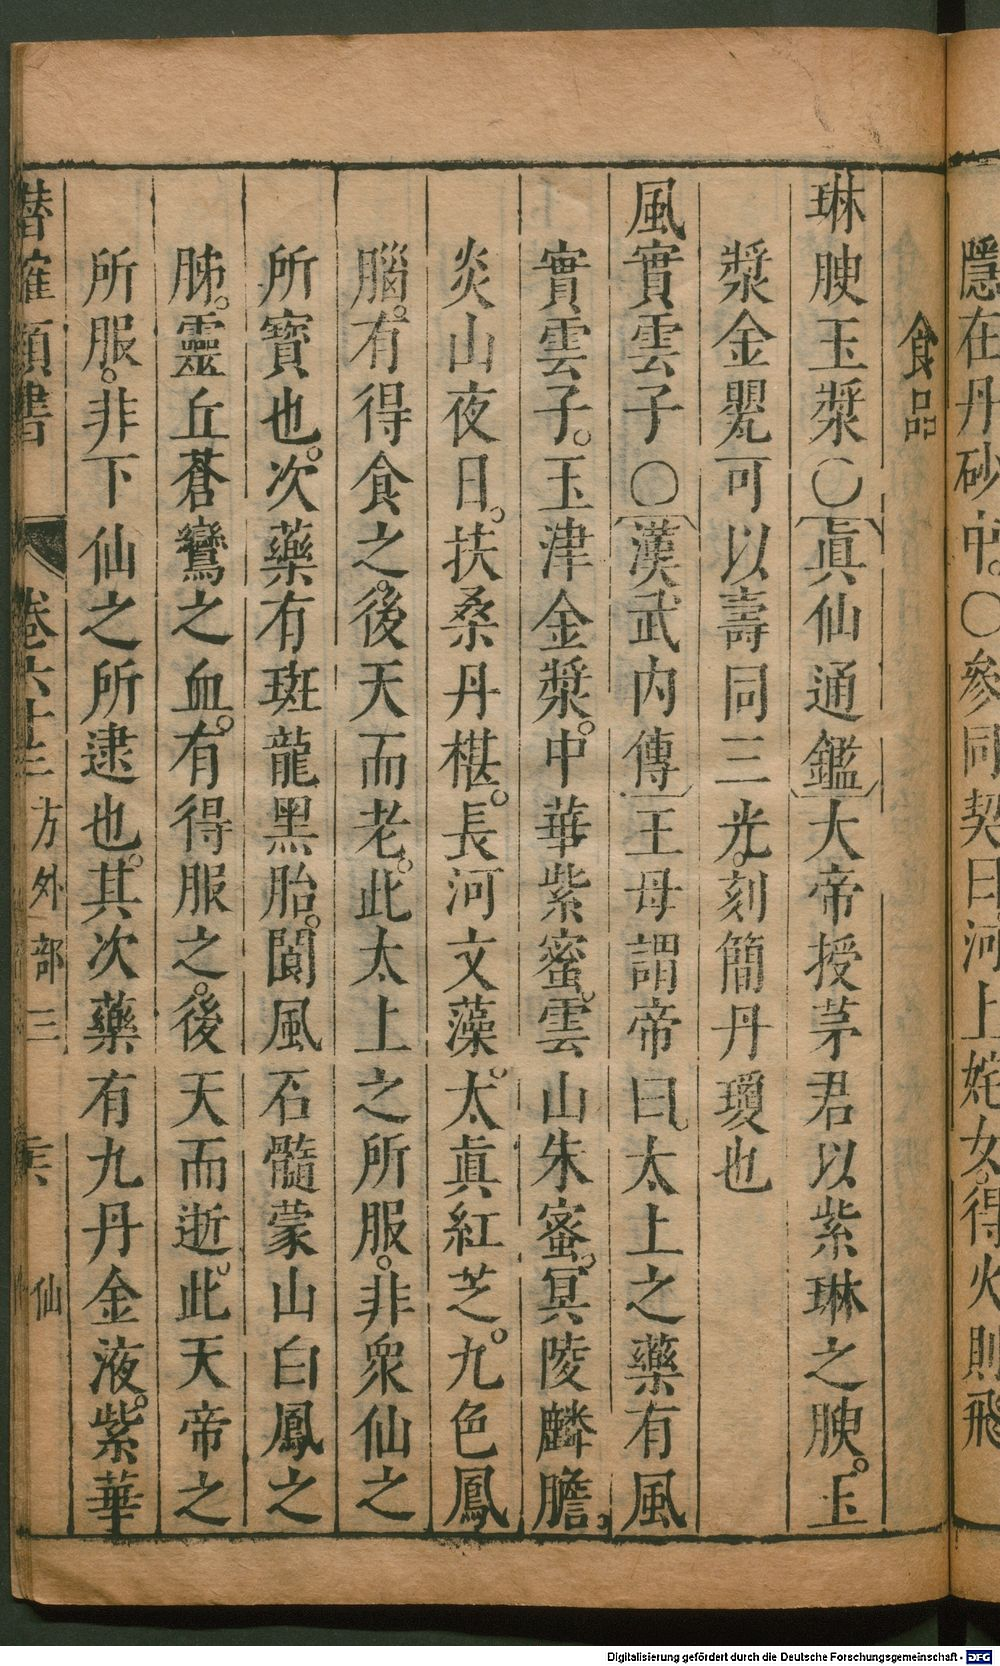 隱在丹砂中。〇參同契曰河上姹女。得火則飛
食品
琳腴玉漿〇〔眞仙通鑑〕大帝授茅君以紫琳之腴。玉
漿金甖可以壽同三光。刻簡丹瓊也
風實雲子〇〔漢武內傳〕王母謂帝曰。太上之藥有風
實雲子。玉津金漿。中華紫蜜。雲山朱蜜。冥陵麟膽。
炎山夜日。扶桑丹椹。長河文藻。太眞紅芝。九色鳳
腦。有得食之。後天而老。此太上之所服。非衆仙之
所寶也。次藥有斑龍黑胎。閬風石髓蒙山白鳳之
胏。靈丘蒼鸞之血。有得服之。後天而逝。此天帝之
所服。非下仙之所逮也。其次藥有九丹金液。紫華
潛確類書 卷六十三 方外部三 仙
Digitalisierung gefördert durch die Deutsche Forschungsgemeinschaft - DFG